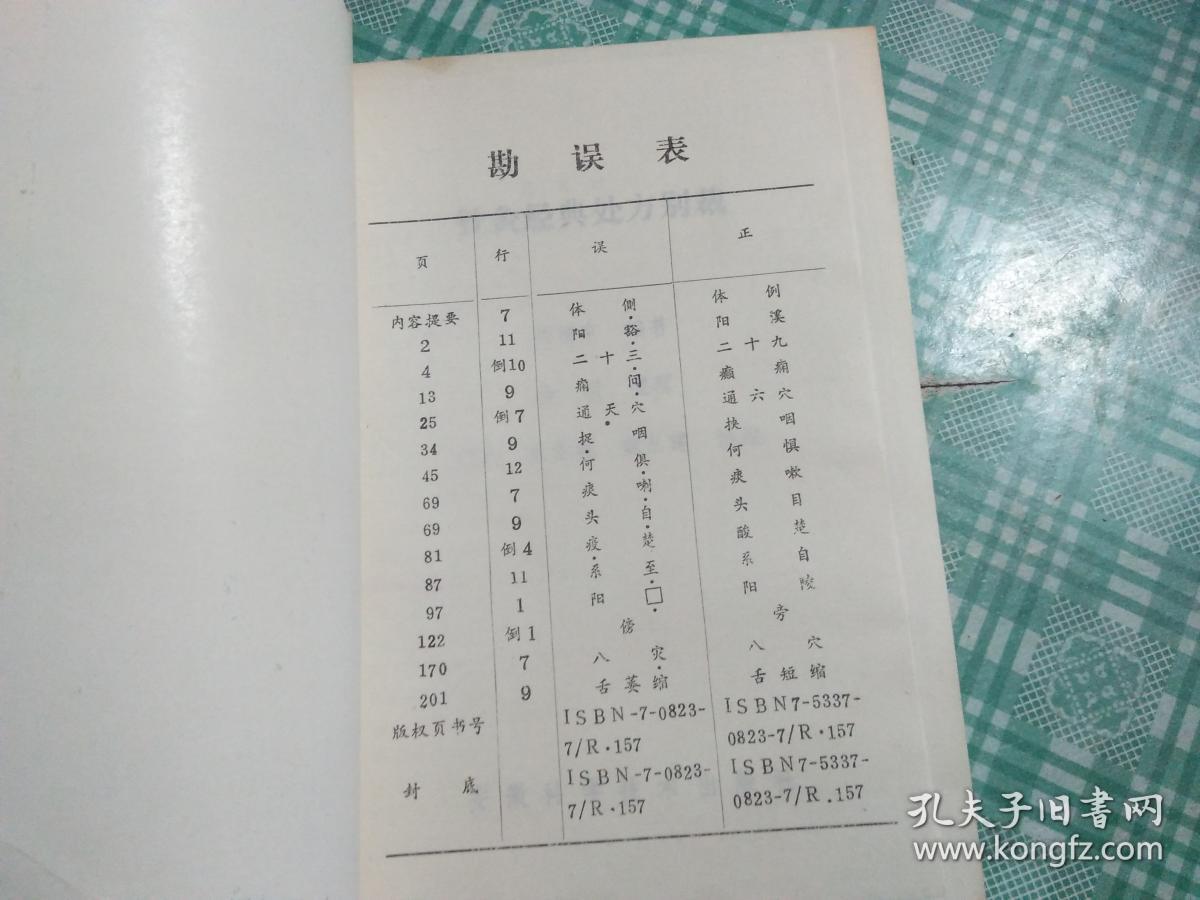 勘误表
页 行 误 正
内容提要 7 体侧 体例
2 11 阳豁 阳溪
4 倒10 二十三 二十九
13 9 痫问 癫痫
25 倒7 通天穴 通六穴
34 9 捉咽 挟咽
45 12 何俱 何惧
69 7 痰喇 痰嗽
69 9 头自 头目
81 倒4 疫楚 酸楚
87 11 系至 系自
97 1 阳□ 阳陵
122 倒1 傍 旁
170 7 八灾 八穴
201 9 舌萎缩 舌短缩
版权页书号 ISBN-7-0823-7/R·157 ISBN7-5337-0823-7/R·157
封底 ISBN-7-0823-7/R·157 ISBN7-5337-0823-7/R.157
孔夫子旧书网
www.kongfz.com